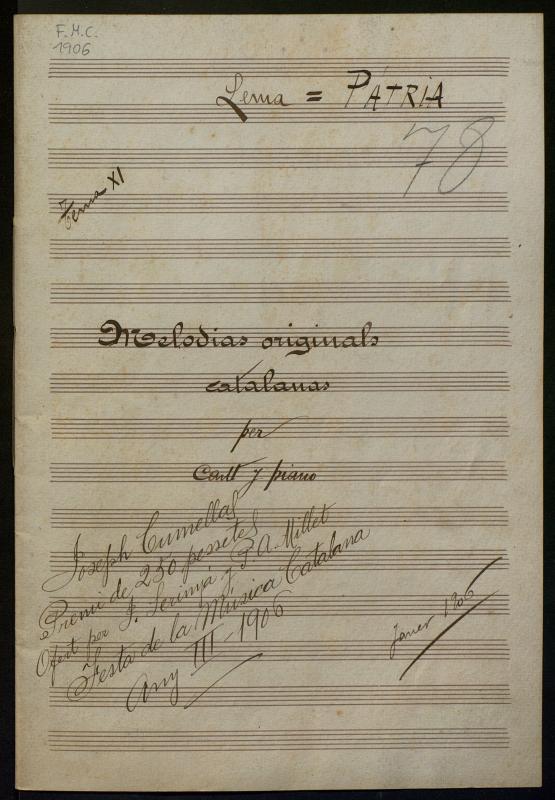 F.M.C.
1906
Lema = PÀTRIA
78
Tema XI
Melodias originals
catalanas
per
Cant y piano
Joseph Cumellas
Premi de 250 pessetes
Ofert per J. y P. A. Millet
Festa de la Música Catalana
Any III - 1906
Janer 1906